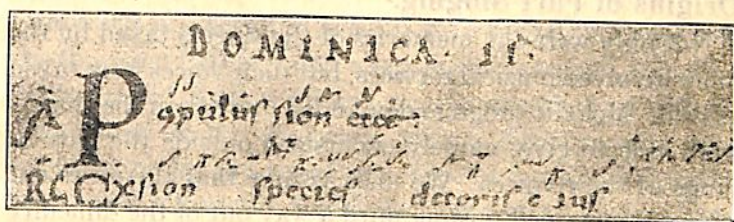 DOMINICA· II·
A Populus sion ecce·
RG Exsion species decoris eius